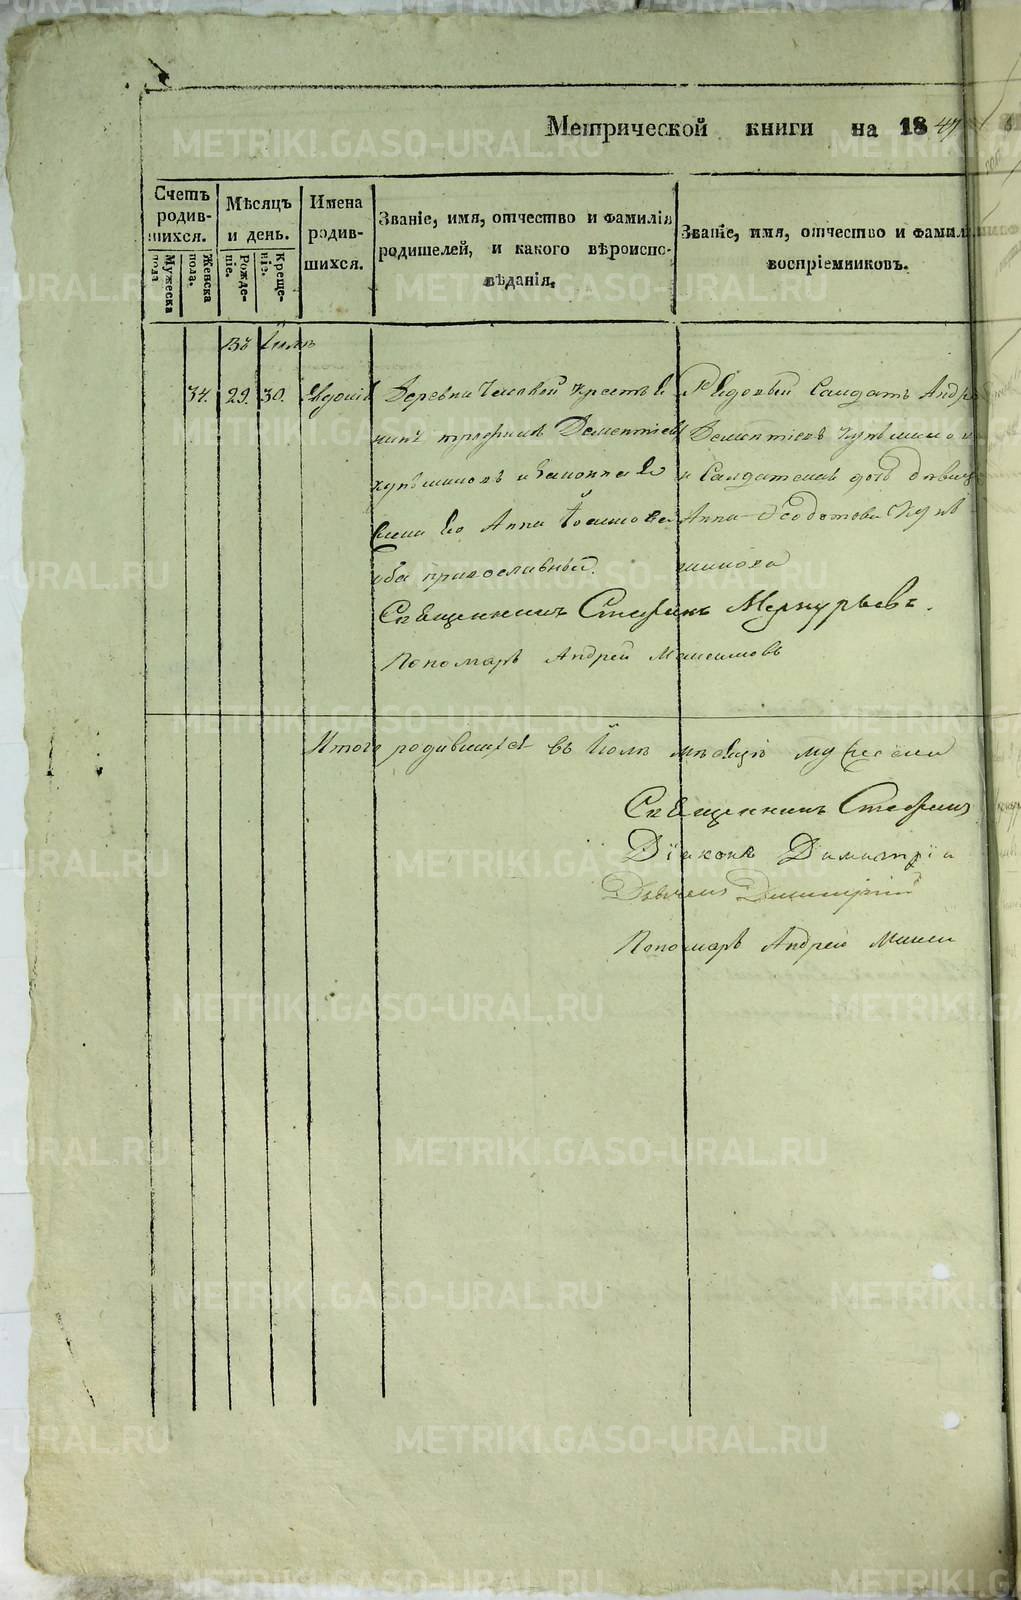 Метрической книги на 1847
Счетъ родив-шихся.
Мужеска пола
Женска пола.
Мѣсяцъ и день.
Рожде-ніе.
Креще-ніе.
Имена родив-шихся.
Званіе, имя, отчество и фамилія
родителей, и какого вѣроиспо-
вѣданія.
Званіе, имя, отчество и фамил
воспріемниковъ.
Въ Іюлѣ
34. 29. 30. Евдокія
Деревни крестья
нинъ Дементіевъ
и законная
Анна
оба православныи.
Рядовый Салдатъ Андрей
Дементіевъ
и Салдатская дочь дѣвица
Анна Ѳеодотова
Священникъ Стефанъ Меркурьевъ.
Пономарь Андрей Максимовъ
Итого родившихся въ Іюлѣ мѣсяцѣ мужеска
Священникъ Стефанъ
Діаконъ Димитрій
Дьячекъ Димитрій
Пономарь Андрей Макси
METRIKI.GASO-URAL.RU